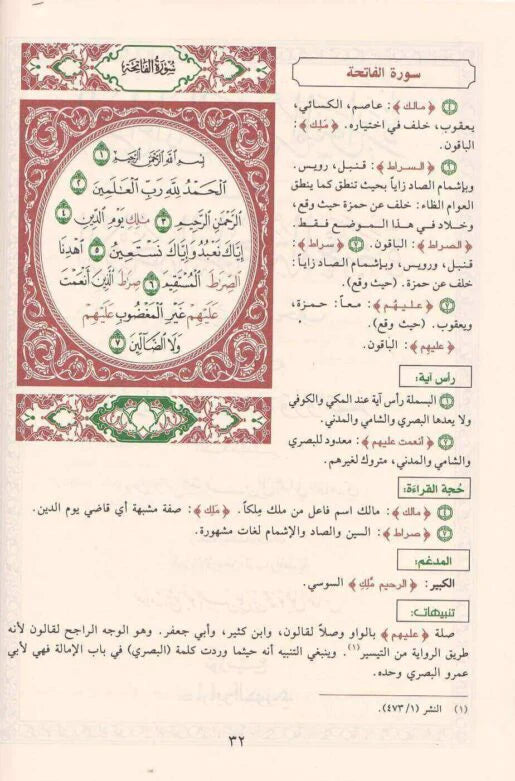 سورة الفاتحة
④ ﴿مالك﴾: عاصم، الكسائي،
يعقوب، خلف في اختياره. ﴿مَلِك﴾:
الباقون.
﴿السراط﴾: قنبل، رويس.
وبإشمام الصاد زاياً بحيث تنطق كما ينطق
العوام الظاء: خلف عن حمزة حيث وقع،
وخلاد في هذا الموضع فقط.
﴿الصراط﴾: الباقون. ⑦ ﴿سراط﴾:
قنبل، ورويس، وبإشمام الصاد زاياً:
خلف عن حمزة. (حيث وقع).
⑦ ﴿عليهُم﴾: معاً: حمزة،
ويعقوب. (حيث وقع).
﴿عليهِم﴾: الباقون.
رأس آية:
① البسملة رأس آية عند المكي والكوفي
ولا يعدها البصري والشامي والمدني.
﴿أنعمت عليهم﴾: معدود للبصري
والشامي والمدني، متروك لغيرهم.
سُورَةُ الفَاتِحَة
بِسْمِ اللَّهِ الرَّحْمَٰنِ الرَّحِيمِ ①
الْحَمْدُ لِلَّهِ رَبِّ الْعَالَمِينَ ②
الرَّحْمَٰنِ الرَّحِيمِ ③ مَلِكِ يَوْمِ الدِّينِ ④
إِيَّاكَ نَعْبُدُ وَإِيَّاكَ نَسْتَعِينُ ⑤ اهْدِنَا
الصِّرَاطَ الْمُسْتَقِيمَ ⑥ صِرَاطَ الَّذِينَ أَنْعَمْتَ
عَلَيْهِمْ غَيْرِ الْمَغْضُوبِ عَلَيْهِمْ
وَلَا الضَّالِّينَ ⑦
حُجة القراءة:
④ ﴿مالك﴾: مالك اسم فاعل من ملك مِلكاً. ﴿مَلِك﴾: صفة مشبهة أي قاضي يوم الدين.
﴿صراط﴾: السين والصاد والإشمام لغات مشهورة.
المدغم:
الكبير: ﴿الرحيم مَّلِكِ﴾ السوسي.
تنبيهات:
صلة ﴿عليهم﴾ بالواو وصلاً لقالون، وابن كثير، وأبي جعفر. وهو الوجه الراجح لقالون لأنه
طريق الرواية من التيسير(١). وينبغي التنبيه أنه حيثما وردت كلمة (البصري) في باب الإمالة فهي لأبي
عمرو البصري وحده.
(١) النشر (٤٧٣/١).
٣٢